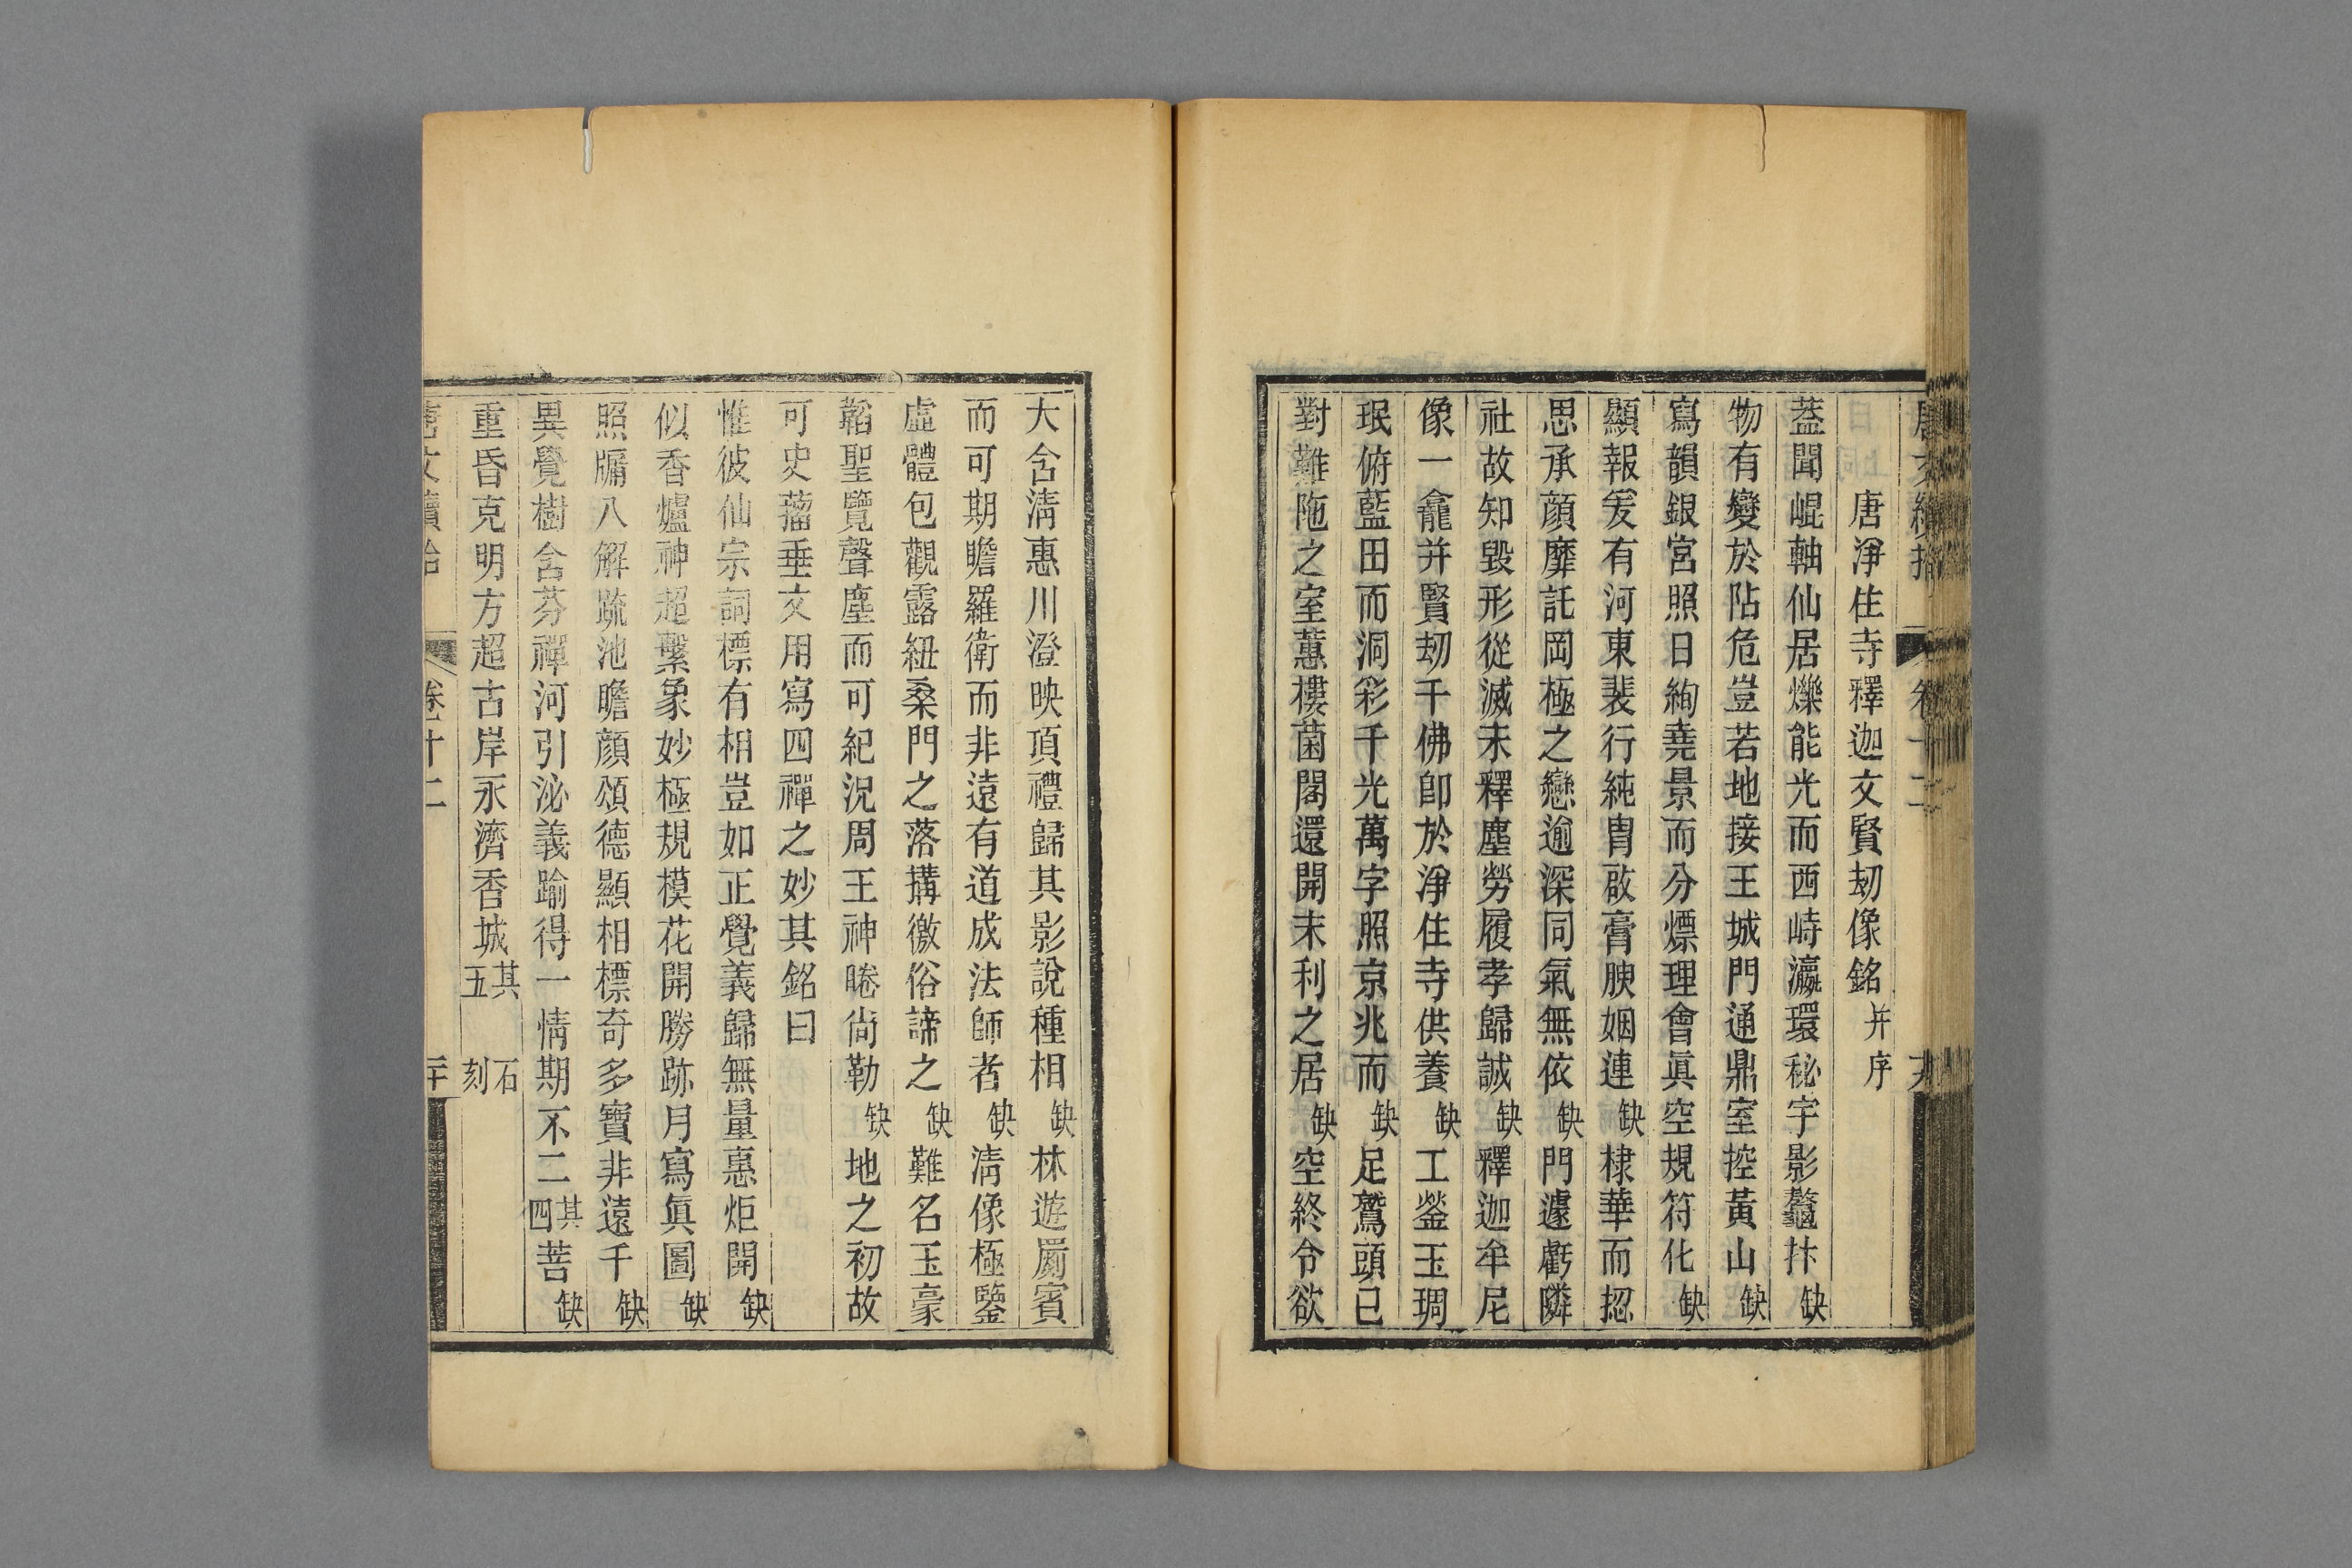 唐淨住寺釋迦文賢刼像銘并序
蓋聞崐軸仙居爍能光而西峙瀛環秘宇影鼇抃缺
物有變於阽危豈若地接王城門通鼎室控黃山缺
寫韻銀宮照日絢堯景而分爃理會眞空規符化缺
顯報爰有河東裴行純胄啟膏腴姻連缺棣華而㧾
思承顏靡託岡極之戀逾深同氣無依缺門遽虧隣
社故知毀形從滅未釋塵勞履孝歸誠缺釋迦牟尼
像一龕并賢刼千佛卽於淨住寺供養缺工鎣玉琱
珉俯藍田而洞彩千光萬字照京兆而缺足鷲頭已
對難陁之室蕙樓菌閣還開末利之居缺空終令欲
大含淸惠川澄映頂禮歸其影說種相缺林遊罽賓
而可期瞻羅衛而非遠有道成法師者缺淸像極鑒
虛體包觀露紐桑門之落搆徼俗諦之缺難名玉豪
韜聖覽聲塵而可紀況周王神睠尙勒缺地之初故
可史籀垂文用寫四禪之妙其銘曰
惟彼仙宗詞標有相豈如正覺義歸無量惪炬開缺
似香爐神超繫象妙極規模花開勝跡月寫眞圖缺
照牖八解疏池瞻顏頌德顯相標奇多寶非遠千缺
異覺樹含芬禪河引泌義踰得一情期不二其四菩缺
重昏克明方超古岸永濟香城其五 石刻
卷十二